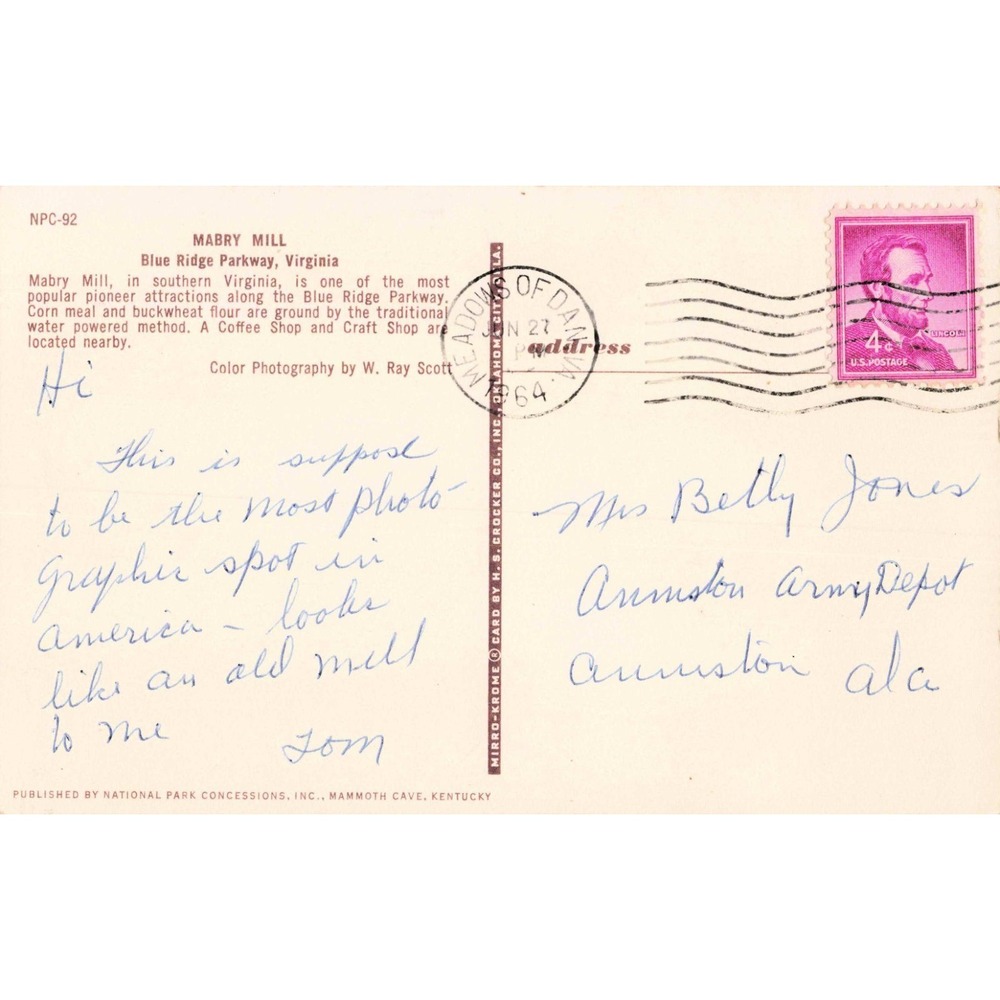 NPC-92
MABRY MILL
Blue Ridge Parkway, Virginia
Mabry Mill, in southern Virginia, is one of the most
popular pioneer attractions along the Blue Ridge Parkway.
Corn meal and buckwheat flour are ground by the traditional
water powered method. A Coffee Shop and Craft Shop are
located nearby.
Color Photography by W. Ray Scott
Hi
This is suppose
to be the most photo-
graphic spot in
america - looks
like an old mill
to me
Tom
PUBLISHED BY NATIONAL PARK CONCESSIONS, INC., MAMMOTH CAVE, KENTUCKY
MIRRO-KROME ® CARD BY H. S. CROCKER CO., INC., OKLAHOMA CITY, OKLA.
MEADOWS OF DAN VA.
JUN 27
PM
1964
address
LINCOLN
4¢
U.S. POSTAGE
Mrs Betty Jones
Anniston Army Depot
Anniston Ala